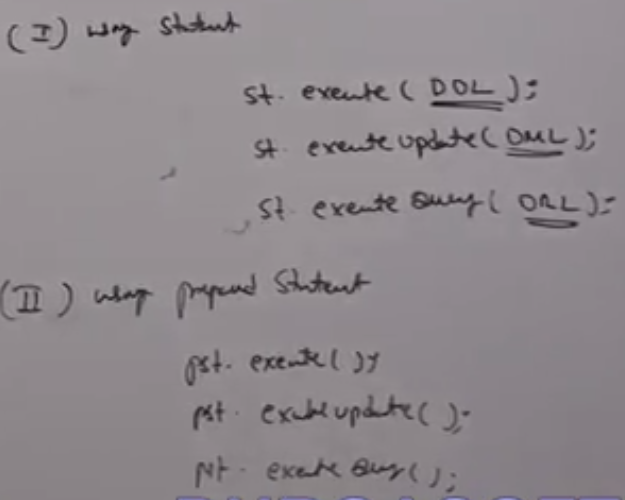 (I) using Statement
st. execute ( DDL );
st. execute update ( DML );
st. execute Query ( DRL );
(II) using prepared Statement
pst. execute ( );
pst. execute update ( );
pst. execute Query ( );